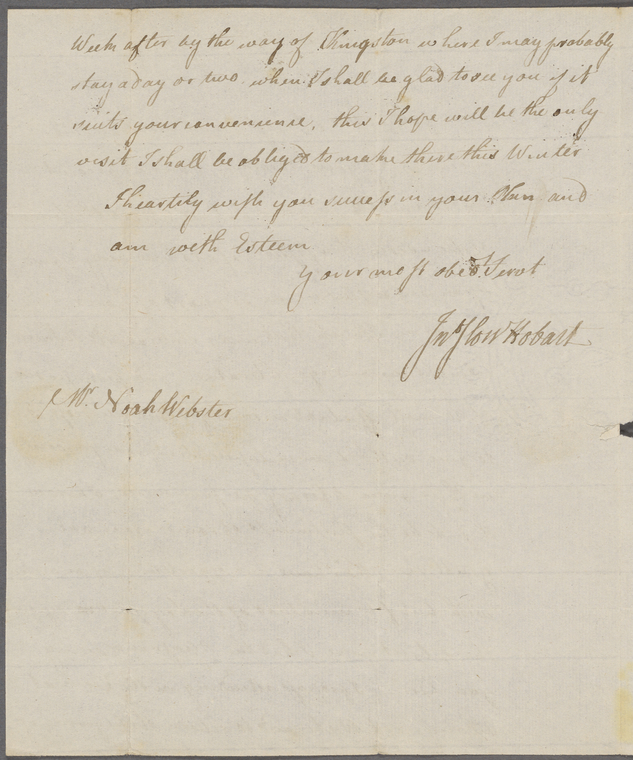 Week after by the way of Kingston where I may probably
stay a day or two when I shall be glad to see you if it
suits your convenience, this I hope will be the only
visit I shall be obliged to make there this Winter
I heartily wish you success in your Plan and
am with Esteem
your most obedt. Servt
Jno Sloss Hobart
Mr. Noah Webster